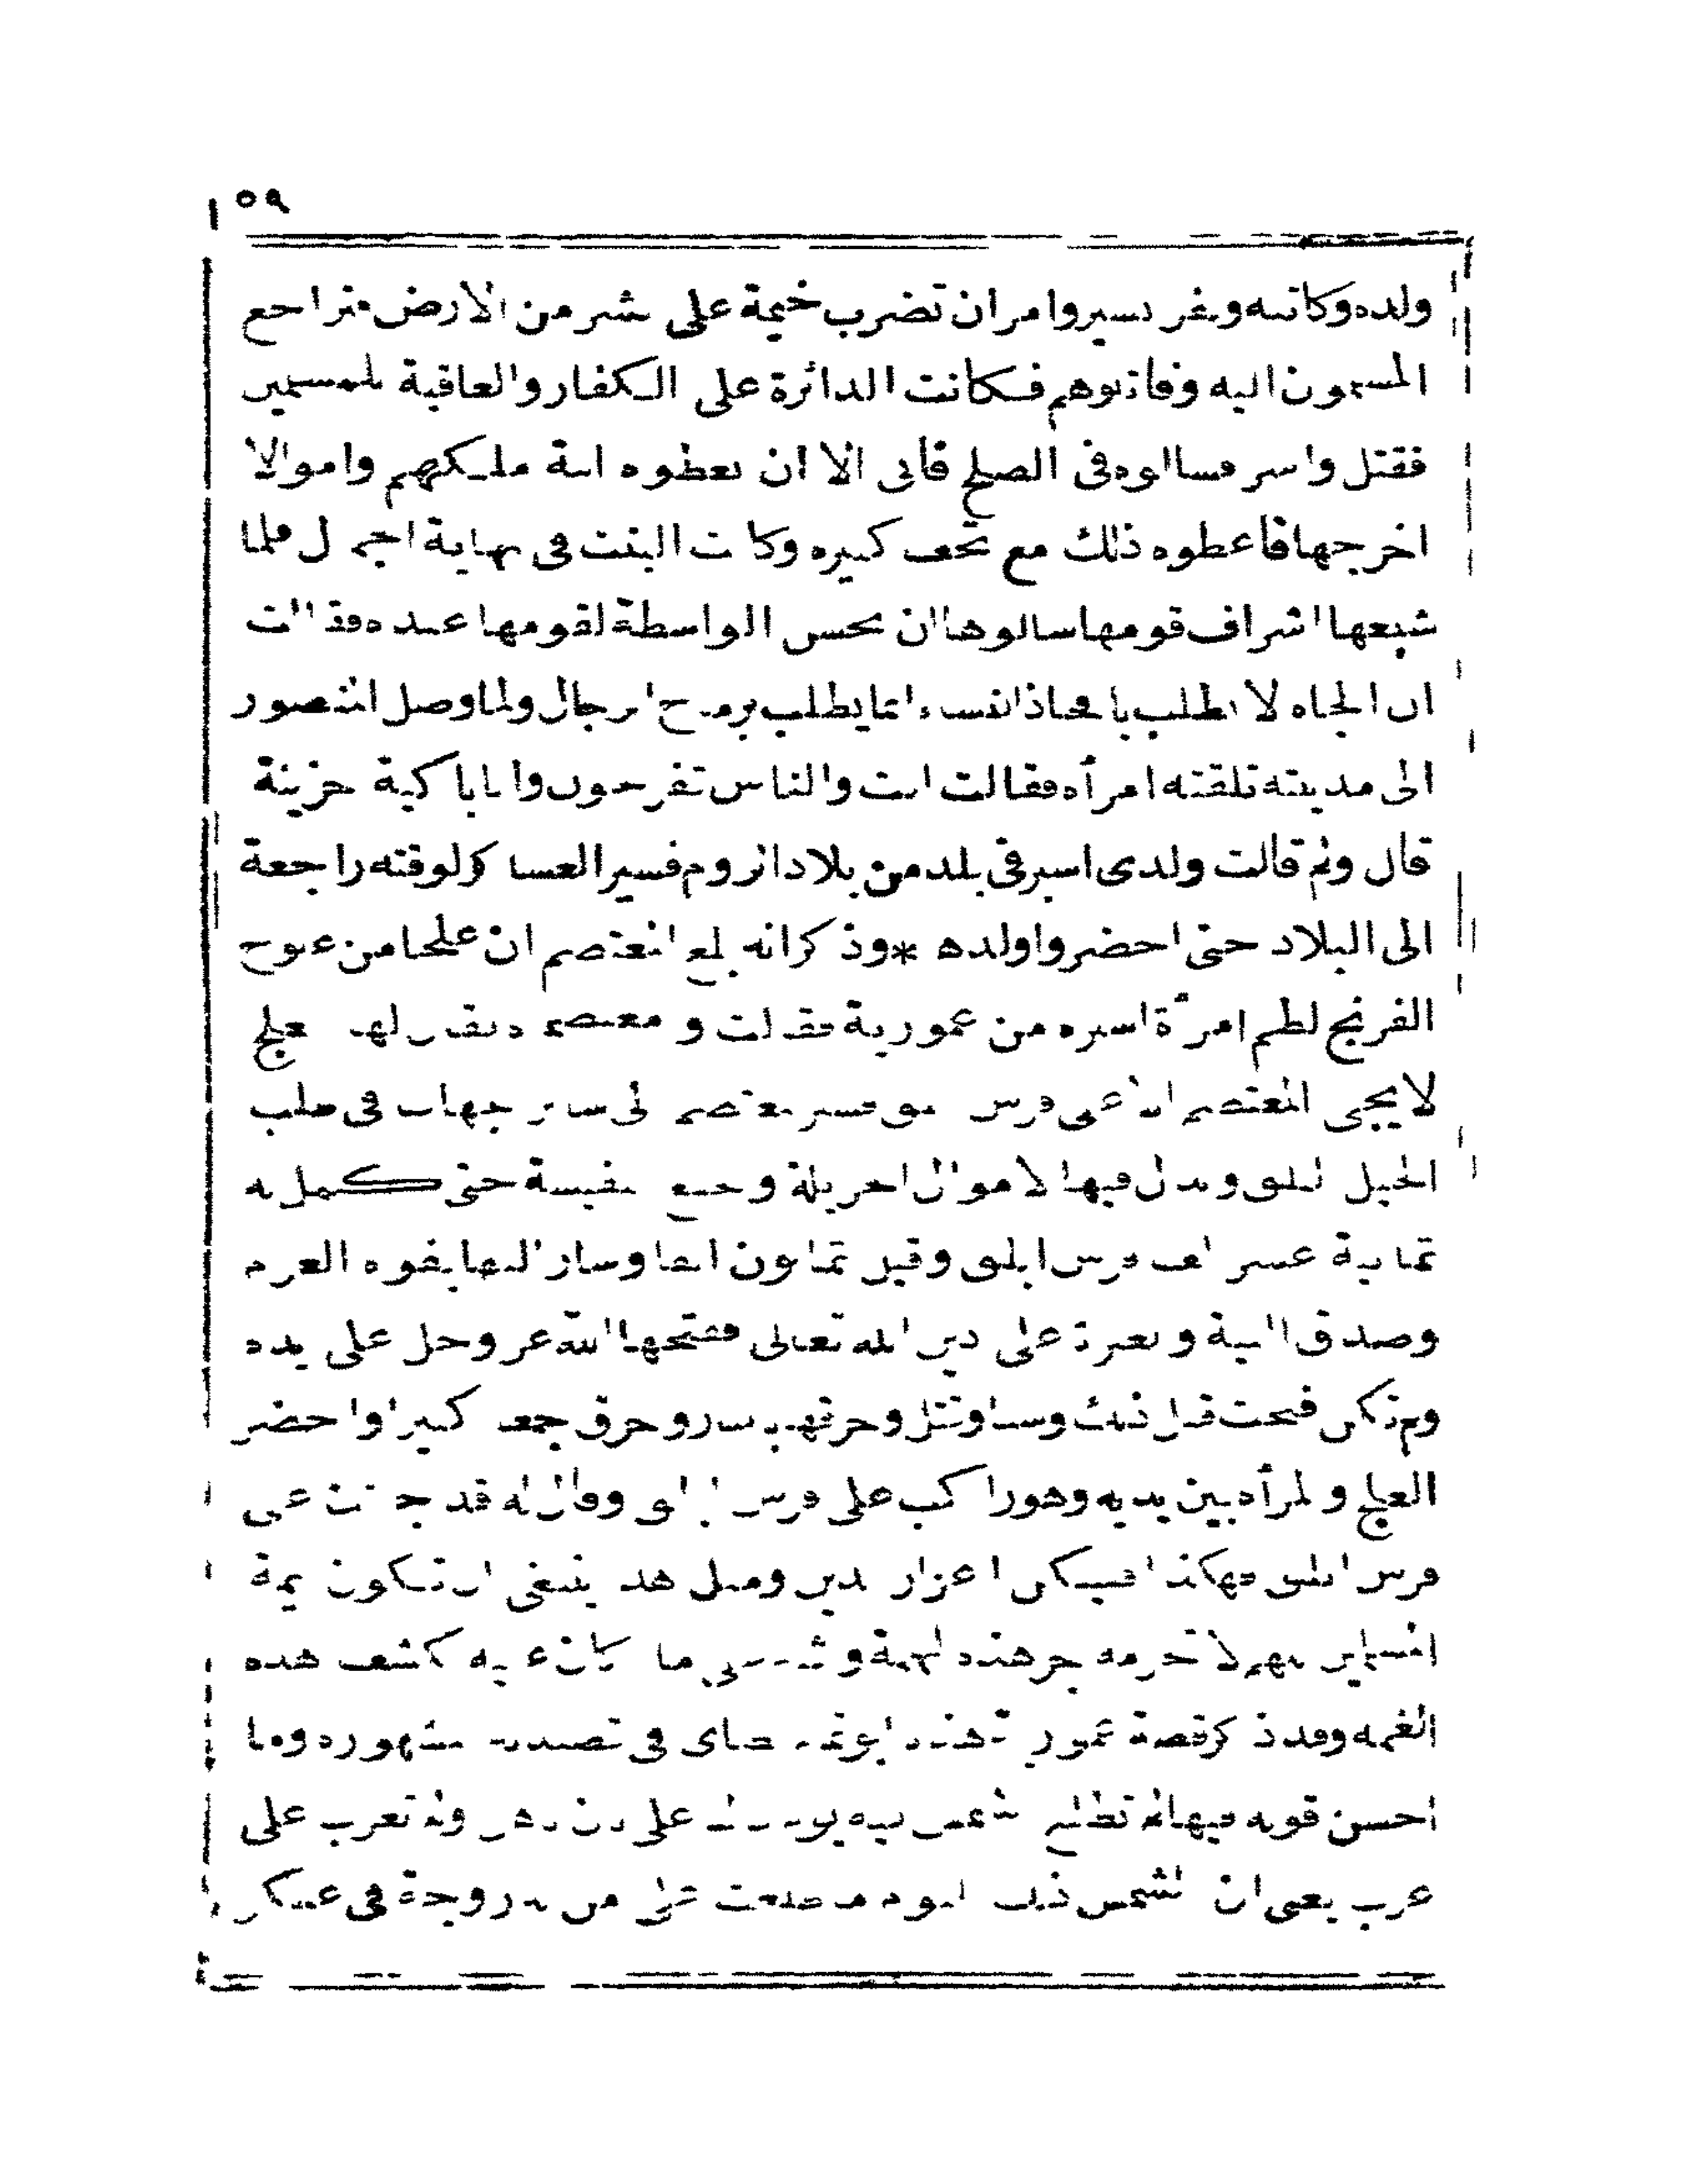 ١٥٩
ولده وكاتبه ونفر يسير وامر ان تضرب خيمة على نشر من الارض فتراجع
المسلمون اليه وقاتلوهم فكانت الدائرة على الكفار والعاقبة للمسلمين
فقتل واسر فسالوه فى الصلح فأبى الا ان يعطوه ابنة ملكهم واموالا
اخرجها فاعطوه ذلك مع تحف كبيره وكانت البنت فى نهاية الجمال فلما
شيعها اشراف قومها سالوها ان تحسن الواسطة لقومها عنده فقالت
ان الجاه لا يطلب بافخاذ النساء انما يطلب برماح الرجال ولما وصل المنصور
الى مدينته تلقته امرأه فقالت انت والناس تفرحون وانا باكية حزينة
قال ولم قالت ولدى اسير فى بلد من بلاد الروم فسير العساكر لوقته راجعة
الى البلاد حتى احضروا ولدها *وذكر انه بلغ المعتصم ان علجا من علوج
الفرنج لطم امرأة اسيره من عمورية فقالت وامعتصماه فقال لها العلج
لا يجى المعتصم الا على فرس ابلق فسير المعتصم الى سائر الجهات فى طلب
الخيل البلق وبذل فيها الاموال الجزيلة والخلع النفيسة حتى كمل له
ثمانية عشر الف فرس ابلق وقيل ثمانون الفا وسار اليها بقوه العزم
وصدق النية ونصرة على دين الله تعالى ففتحها الله عز وجل على يده
ولم تكن فتحت قبل ذلك وسبا وقتل وحرقها بالنار وحرق جمعا كبيرا واحضر
العلج والمرأه بين يديه وهو راكب على فرس ابلق وقال له قد جئت على
فرس ابلق فهكذا فليكن اعزاز الدين ومثل هذا ينبغى ان تكون همة
المسلمين لا جرم هذه الهمة ما كان عليه كشف هذه
الغمه وقد ذكر قصة عمورية هذه ابو تمام الطائى فى قصيدته مشهوره وما
احسن قوله فيها لم تطلع الشمس فيه يوم ذاك على بان باهل ولم تغرب على
عزب يعنى ان الشمس ذلك اليوم ما طلعت على من له زوجة فى عسكر